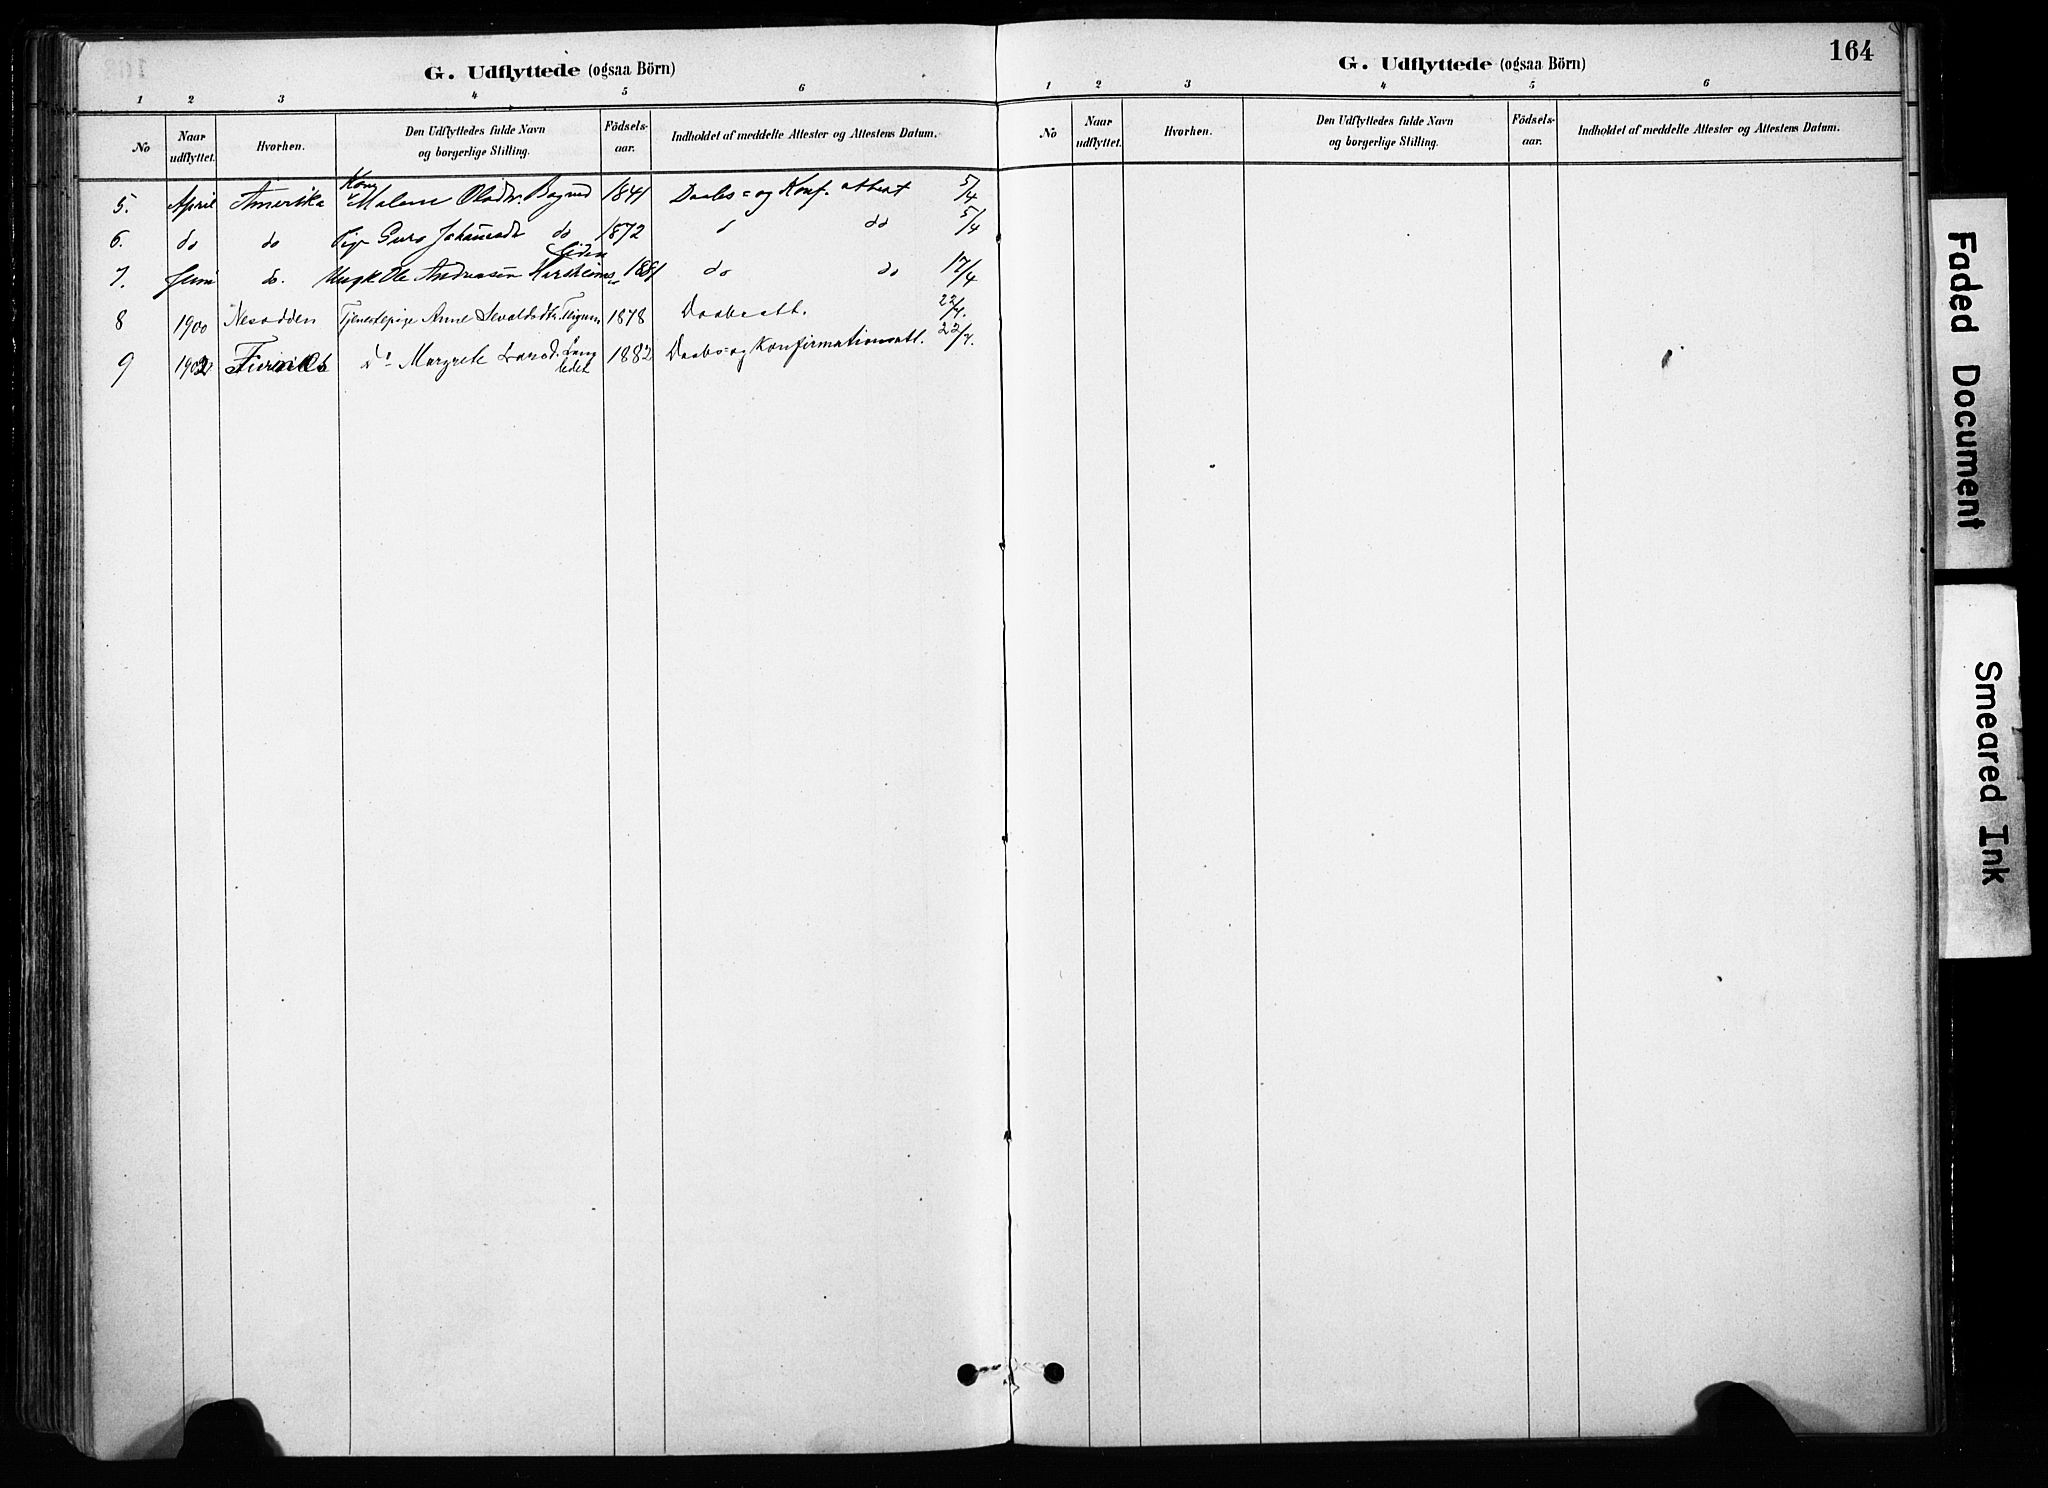 G. Udflyttede (ogsaa Börn)
1 2 3 4 5 6
No Naar udflyttet. Hvorhen. Den Udflyttedes fulde Navn og borgerlige Stilling. Födsels-aar. Indholdet af meddelte Attester og Attestens Datum.
5. April Amerika Kone Malene Olsdtr. Bagned 1841 Daabs= og Konf. attest 5/4
6. do do Pige Guro Johannesdt do 1872 do 5/4
7. Juni do. Ungk Ole Andreassen 1881 do do 17/4
8 1900 Nesodden Tjenestepige Anne Sevaldsdtr. 1878 Daabsatt. 22/7.
9 1902 do Margrete Larsd. 1882 Daabs= og Konfirmationsatt. 22/7.
G. Udflyttede (ogsaa Börn)
164
1 2 3 4 5 6
No Naar udflyttet. Hvorhen. Den Udflyttedes fulde Navn og borgerlige Stilling. Födsels-aar. Indholdet af meddelte Attester og Attestens Datum.
Faded Document
Smeared Ink